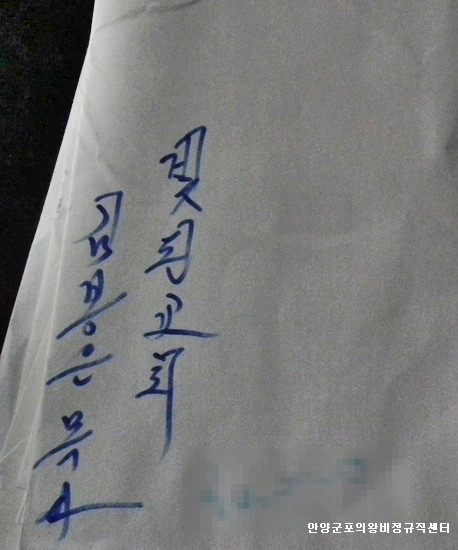 빛된교회
김봉은 목사
안양군포의왕비정규직센터